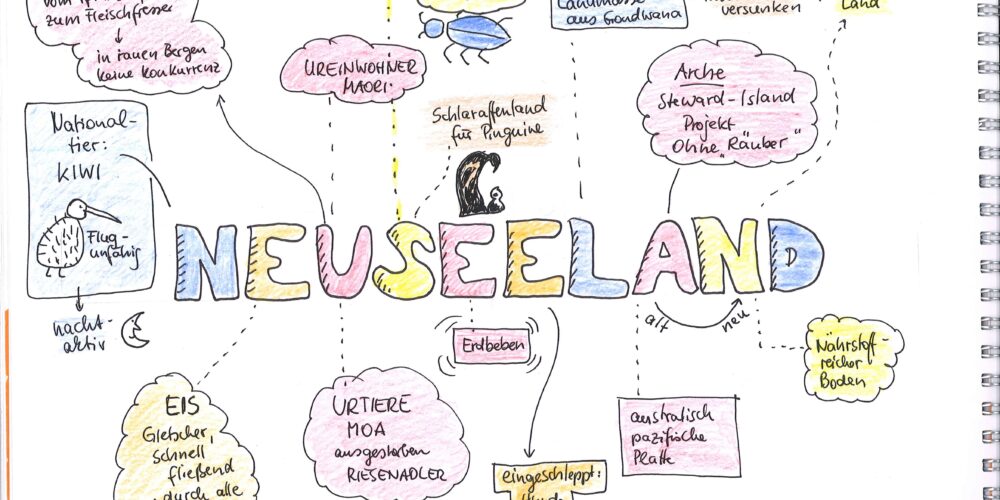 zum Fleischfresser
in rauen Bergen
keine Konkurrenz
Landmasse
aus Gondwana
versunken
Land
UREINWOHNER
MAORI
Arche
Steward-Island
Projekt
Ohne "Räuber"
Schlaraffenland
für Pinguine
National-
tier:
KIWI
Flug-
unfähig
nacht-
aktiv
NEUSEELAND
alt
neu
Erdbeben
Nährstoff-
reicher
Boden
EIS
Gletscher,
schnell
fließend
durch alle
URTIERE
MOA
ausgestorben
RIESENADLER
australisch
pazifische
Platte
eingeschleppt: